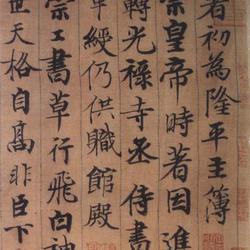 著初為隆平主簿
宗皇帝時著因進
轉光祿寺丞侍書
章綬仍供職館殿
宗工書草行飛白神
世天格自高非臣下